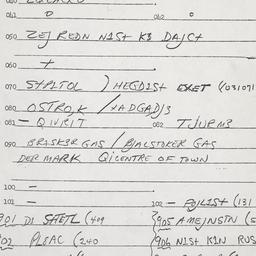 061 0 062 0
050 ZEJ REDN NIST K3 DAJCT
060 +
070 SYPITOL ) HEGDIST EXET (031071
080 OSTROJK / HADGADJ3
081 - QIVRIT 082 TJURM3
090 BRISK3R GAS / BJALSTOKER GAS
DER MARK QICENTRE OF TOWN
100 -
101 - 102 - FGLIST (131
901 DI SHETL (409 905 AMEJNSTN (5
902 PLEAC (240 906 NIST KIN RUS